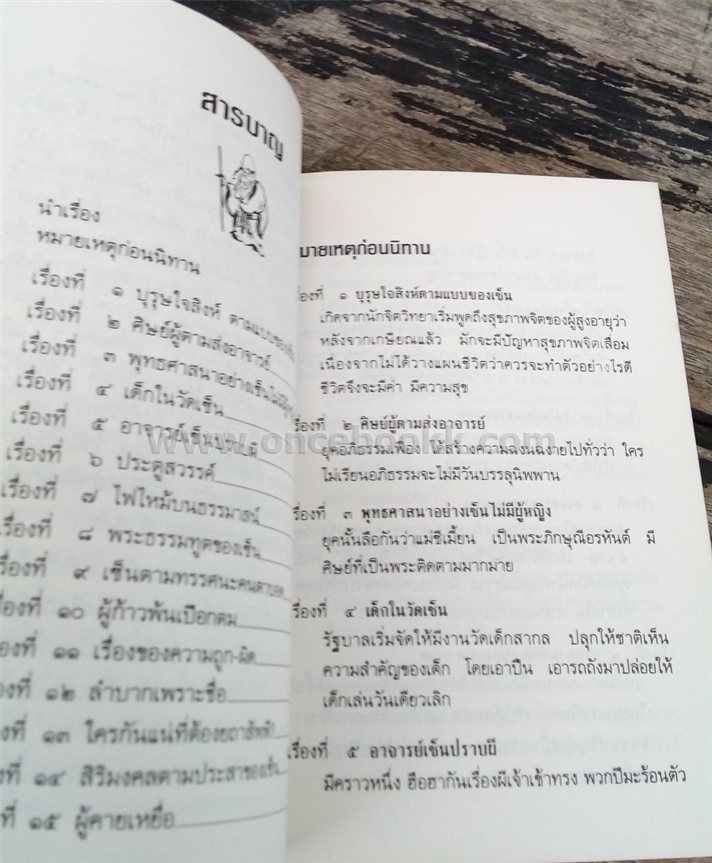 สารบาญ
นำเรื่อง
หมายเหตุก่อนนิทาน
เรื่องที่ ๑ บุรุษใจสิงห์ ตามแบบของเซ็น
เรื่องที่ ๒ ศิษย์ผู้ตามส่งอาจารย์
เรื่องที่ ๓ พุทธศาสนาอย่างเซ็นไม่มีผู้หญิง
เรื่องที่ ๔ เด็กในวัดเซ็น
เรื่องที่ ๕ อาจารย์เซ็นปราบผี
เรื่องที่ ๖ ประตูสวรรค์
เรื่องที่ ๗ ไฟไหม้บนธรรมาสน์
เรื่องที่ ๘ พระธรรมทูตของเซ็น
เรื่องที่ ๙ เซ็นตามทรรศนะคนตาบอด
เรื่องที่ ๑๐ ผู้ก้าวพ้นเปือกตม
องที่ ๑๑ เรื่องของความถูก-ผิด
องที่ ๑๒ ลำบากเพราะชื่อ
งที่ ๑๓ ใครกันแน่ที่ต้อง
งที่ ๑๔ สิริมงคลตามประสาของเซ็น
ที่ ๑๕ ผู้คายเหยื่อ
มายเหตุก่อนนิทาน
เรื่องที่ ๑ บุรุษใจสิงห์ตามแบบของเซ็น
เกิดจากนักจิตวิทยาเริ่มพูดถึงสุขภาพจิตของผู้สูงอายุว่า
หลังจากเกษียณแล้ว มักจะมีปัญหาสุขภาพจิตเสื่อม
เนื่องจากไม่ได้วางแผนชีวิตว่าควรจะทำตัวอย่างไรดี
ชีวิตจึงจะมีค่า มีความสุข
เรื่องที่ ๒ ศิษย์ผู้ตามส่งอาจารย์
ยุคอภิธรรมเฟื่อง ได้สร้างความฉงนฉงายไปทั่วว่า ใคร
ไม่เรียนอภิธรรมจะไม่มีวันบรรลุนิพพาน
เรื่องที่ ๓ พุทธศาสนาอย่างเซ็นไม่มีผู้หญิง
ยุคนั้นลือกันว่าแม่ชีเมี้ยน เป็นพระภิกษุณีอรหันต์ มี
ศิษย์ที่เป็นพระติดตามมากมาย
เรื่องที่ ๔ เด็กในวัดเซ็น
รัฐบาลเริ่มจัดให้มีงานวัดเด็กสากล ปลุกให้ชาติเห็น
ความสำคัญของเด็ก โดยเอาปืน เอารถถังมาปล่อยให้
เด็กเล่นวันเดียวเลิก
เรื่องที่ ๕ อาจารย์เซ็นปราบผี
มีคราวหนึ่ง ฮือฮากันเรื่องผีเจ้าเข้าทรง พวกปีมะร้อนตัว
www.oncebookk.com